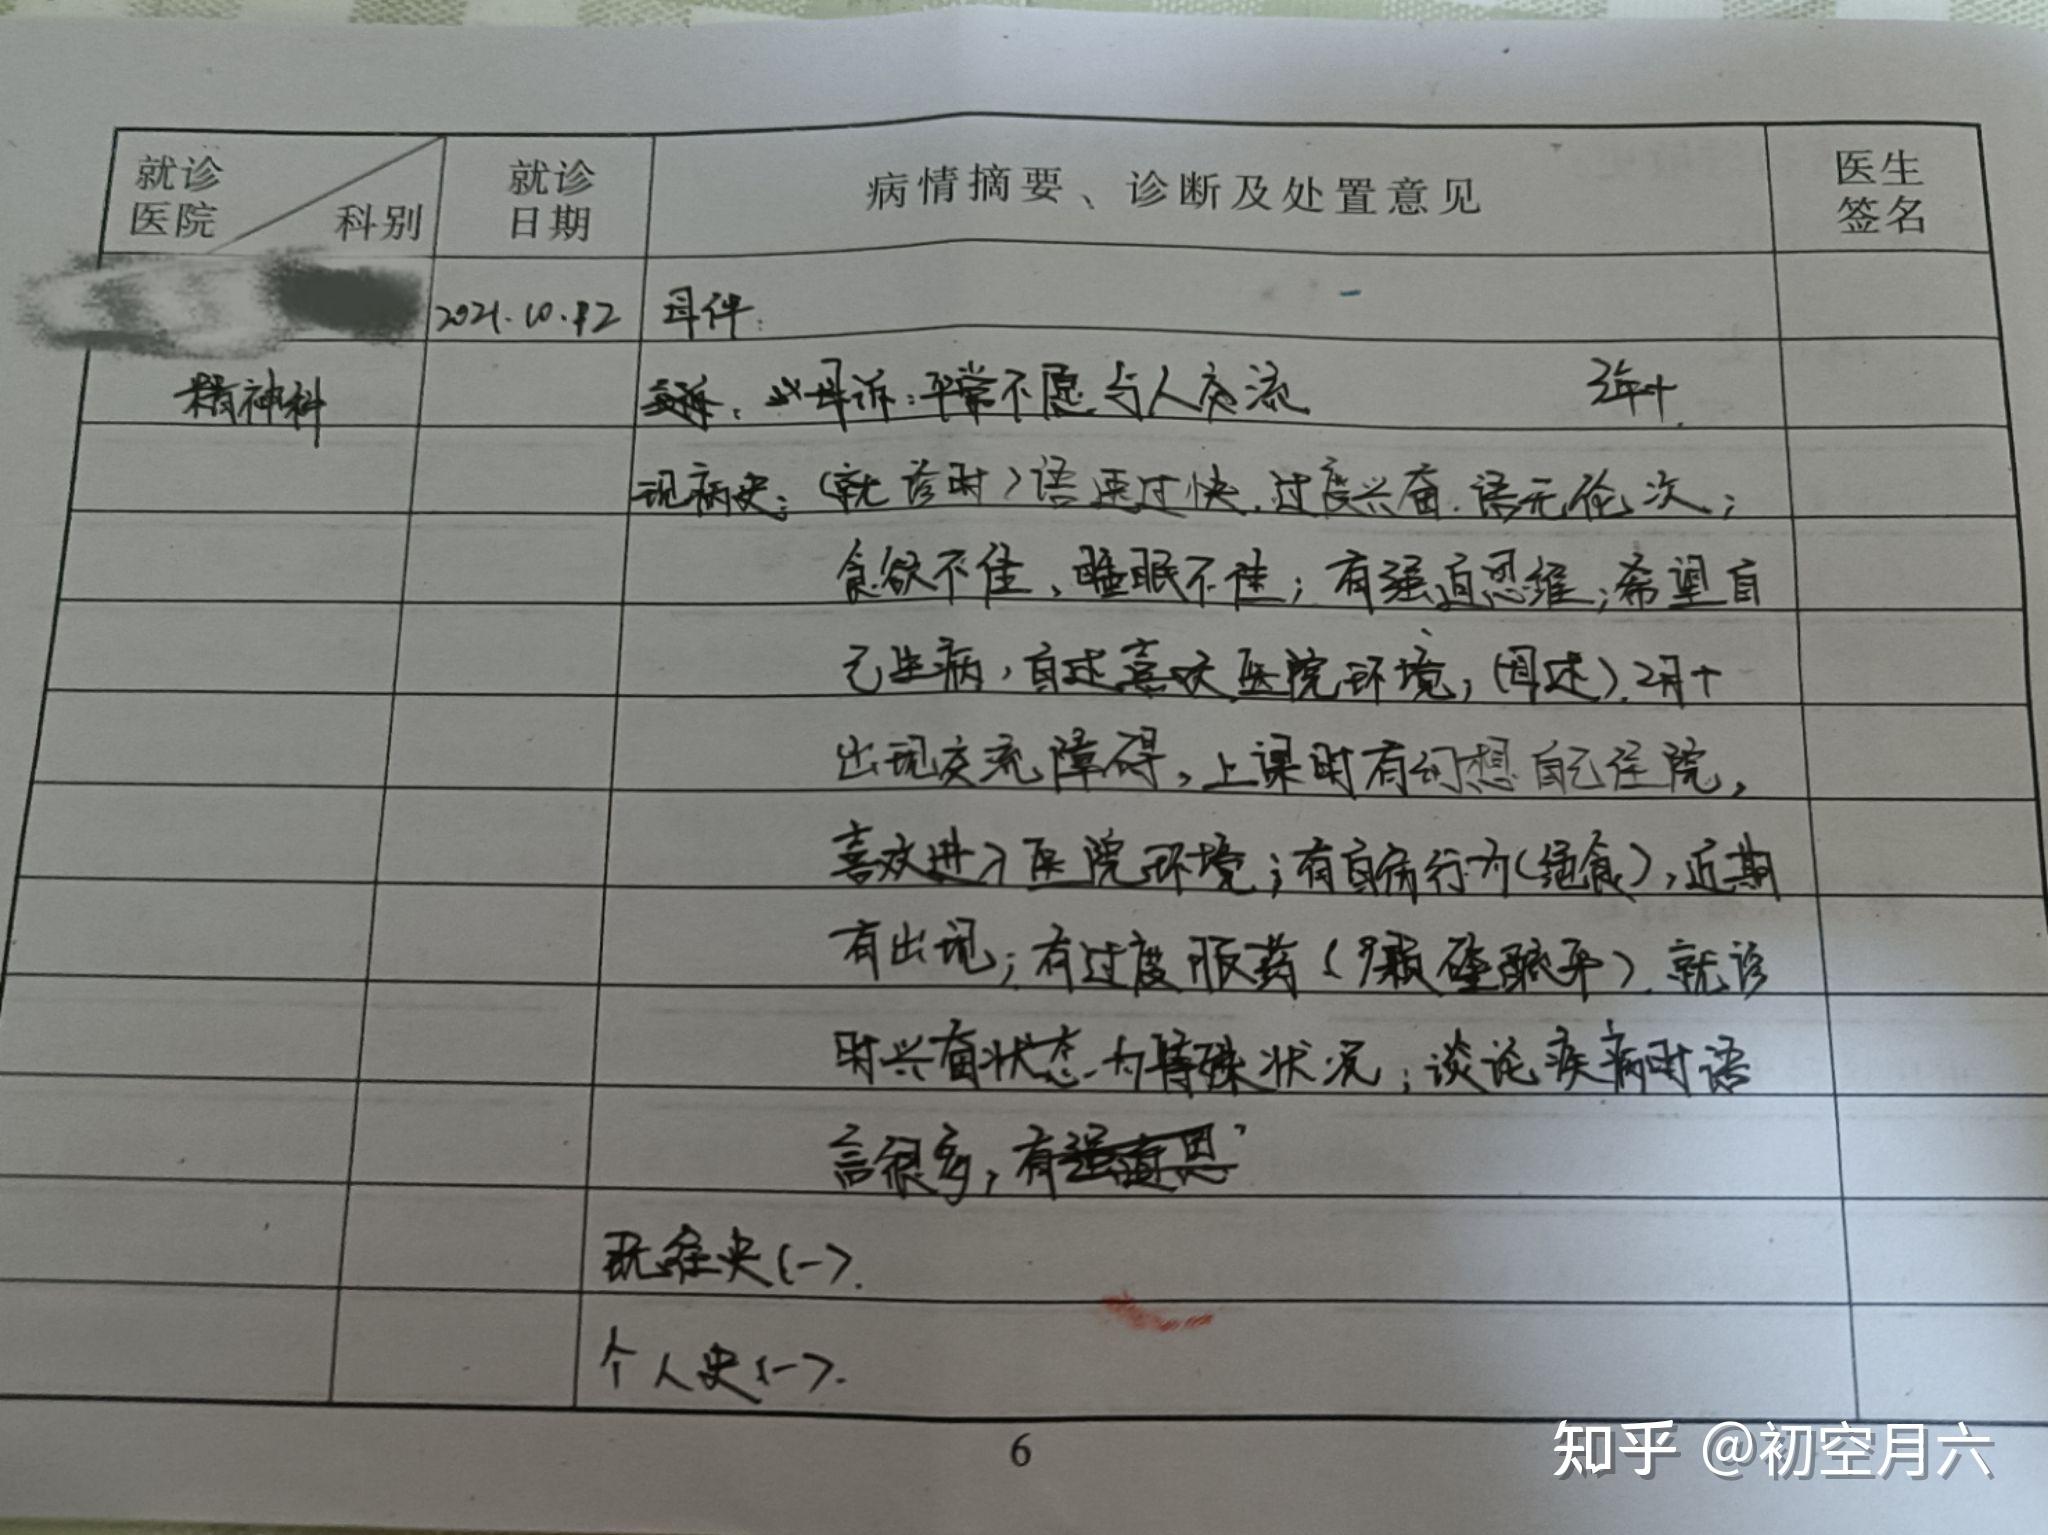 就诊 就诊 病情摘要、诊断及处置意见 医生
医院 科别 日期 签名
2021.10.12 母伴:
精神科 主诉: 母诉:平常不愿与人交流 3年+.
现病史:(就诊时)语速过快.过度兴奋.语无伦次;
食欲不佳、睡眠不佳;有强迫思维;希望自
己生病,自述喜欢医院环境,(母述).2月+
出现交流障碍,上课时有幻想自己住院,
喜欢进入医院环境;有自病行为(绝食),近期
有出现;有过度服药(9颗硫平).就诊
时兴奋状态为特殊状况;谈论疾病时语
言很多,有强迫思
既往史(一).
个人史(一).
6
知乎 @初空月六